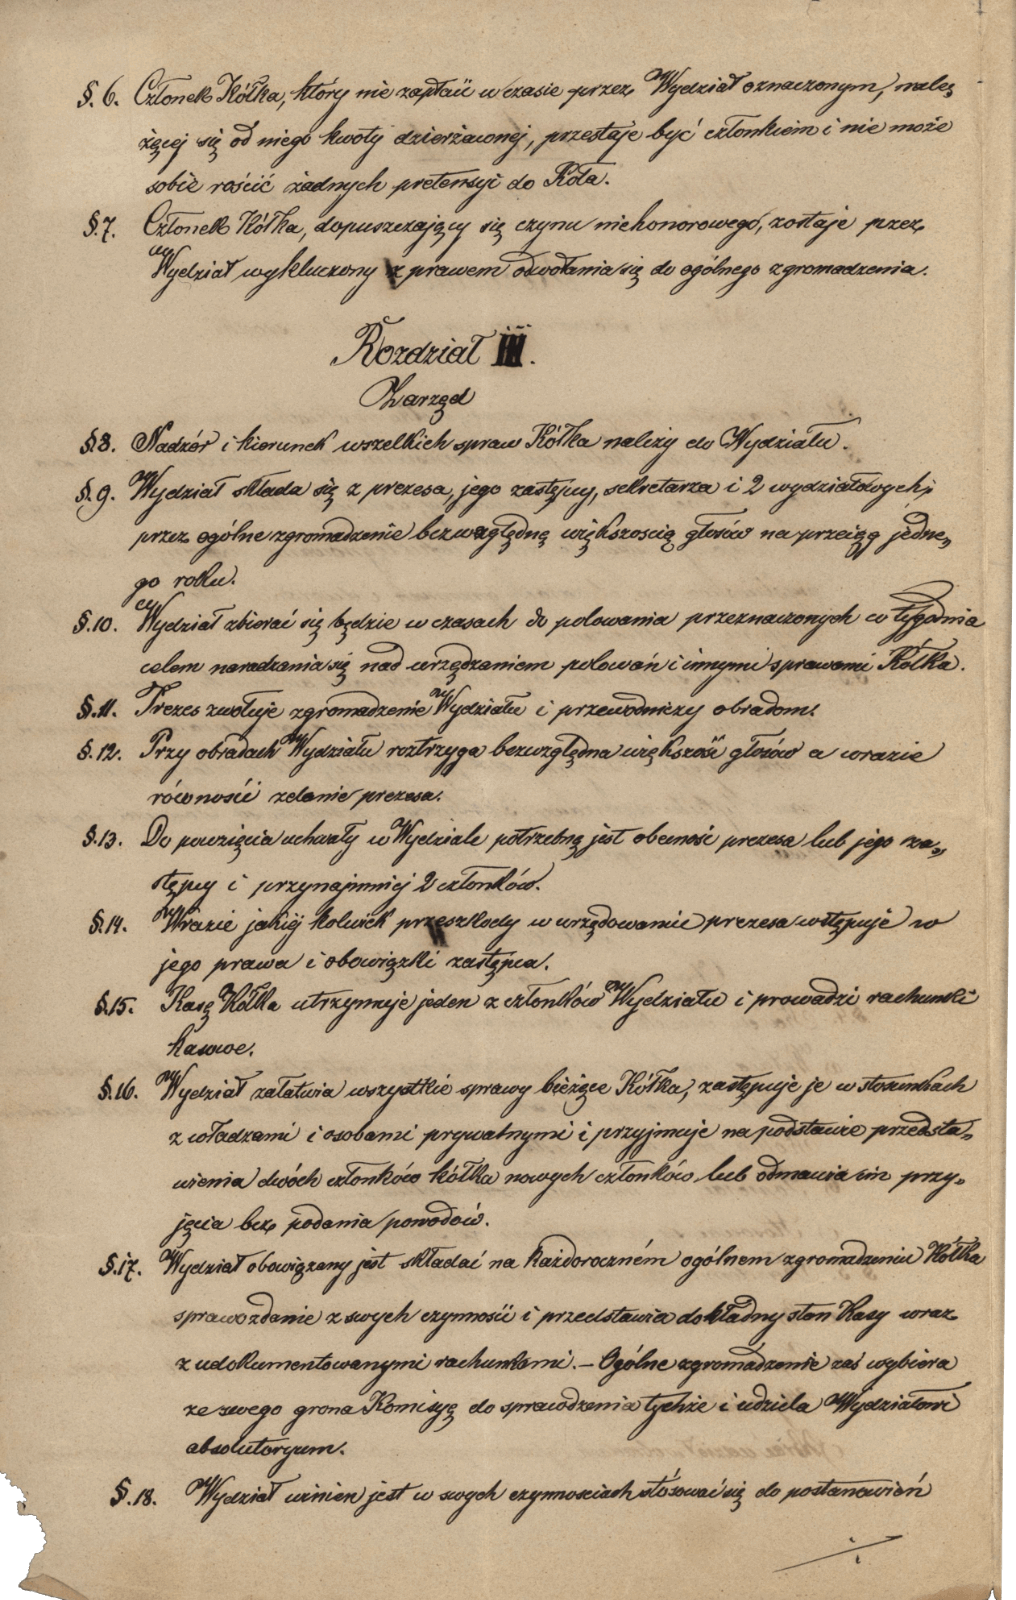 §. 6. Członek Kółka, który nie zapłaci w czasie przez Wydział oznaczonym, nale„
żącej się od niego kwoty dzierżawnej, przestaje być członkiem i nie może
sobie rościć żadnych pretensyi do Koła.
§. 7. Członek Kółka, dopuszczający się czynu niehonorowego, zostaje przez
Wydział wykluczony z prawem odwołania się do ogólnego zgromadzenia.
Rozdział III.
Zarząd
§. 8. Nadzór i kierunek wszelkich spraw Kółka należy do Wydziału.
§. 9. Wydział składa się z prezesa, jego zastępcy, sekretarza i 2 wydziałowych,
przez ogólne zgromadzenie bezwzględną większością głosów na przeciąg jedne„
go roku.
§. 10. Wydział zbierać się będzie w czasach do polowania przeznaczonych co tygodnia
celem naradzania się nad urządzaniem polowań i innymi sprawami Kółka.
§. 11. Prezes zwołuje zgromadzenie Wydziału i przewodniczy obradom.
§. 12. Przy obradach Wydziału roztrzyga bezwzględna większość głosów a w razie
równości zdanie prezesa.
§. 13. Do powzięcia uchwały w Wydziale potrzebną jest obecność prezesa lub jego za„
stępcy i przynajmniej 2 członków.
§. 14. W razie jakiej kolwiek przeszkody w urzędowaniu prezesa wstępuje w
jego prawa i obowiązki zastępca.
§. 15. Kasę Kółka utrzymuje jeden z członków Wydziału i prowadzi rachunki
kasowe.
§. 16. Wydział załatwia wszystkie sprawy bieżące Kółka, zastępuje je w stosunkach
z władzami i osobami prywatnymi i przyjmuje na podstawie przedsta„
wienia dwóch członków kółka nowych członków lub odmawia im przy„
jęcia bez podania powodów.
§. 17. Wydział obowiązany jest składać na każdoroczném ogólnem zgromadzeniu Kółka
sprawozdanie z swych czynności i przedstawia dokładny stan Kasy wraz
z udokumentowanymi rachunkami. – Ogólne zgromadzenie zaś wybiera
ze swego grona Komisyę do sprawdzenia tychże i udziela Wydziałowi
absolutoryum.
§. 18. Wydział winien jest w swych czynnościach stósować się do postanowień